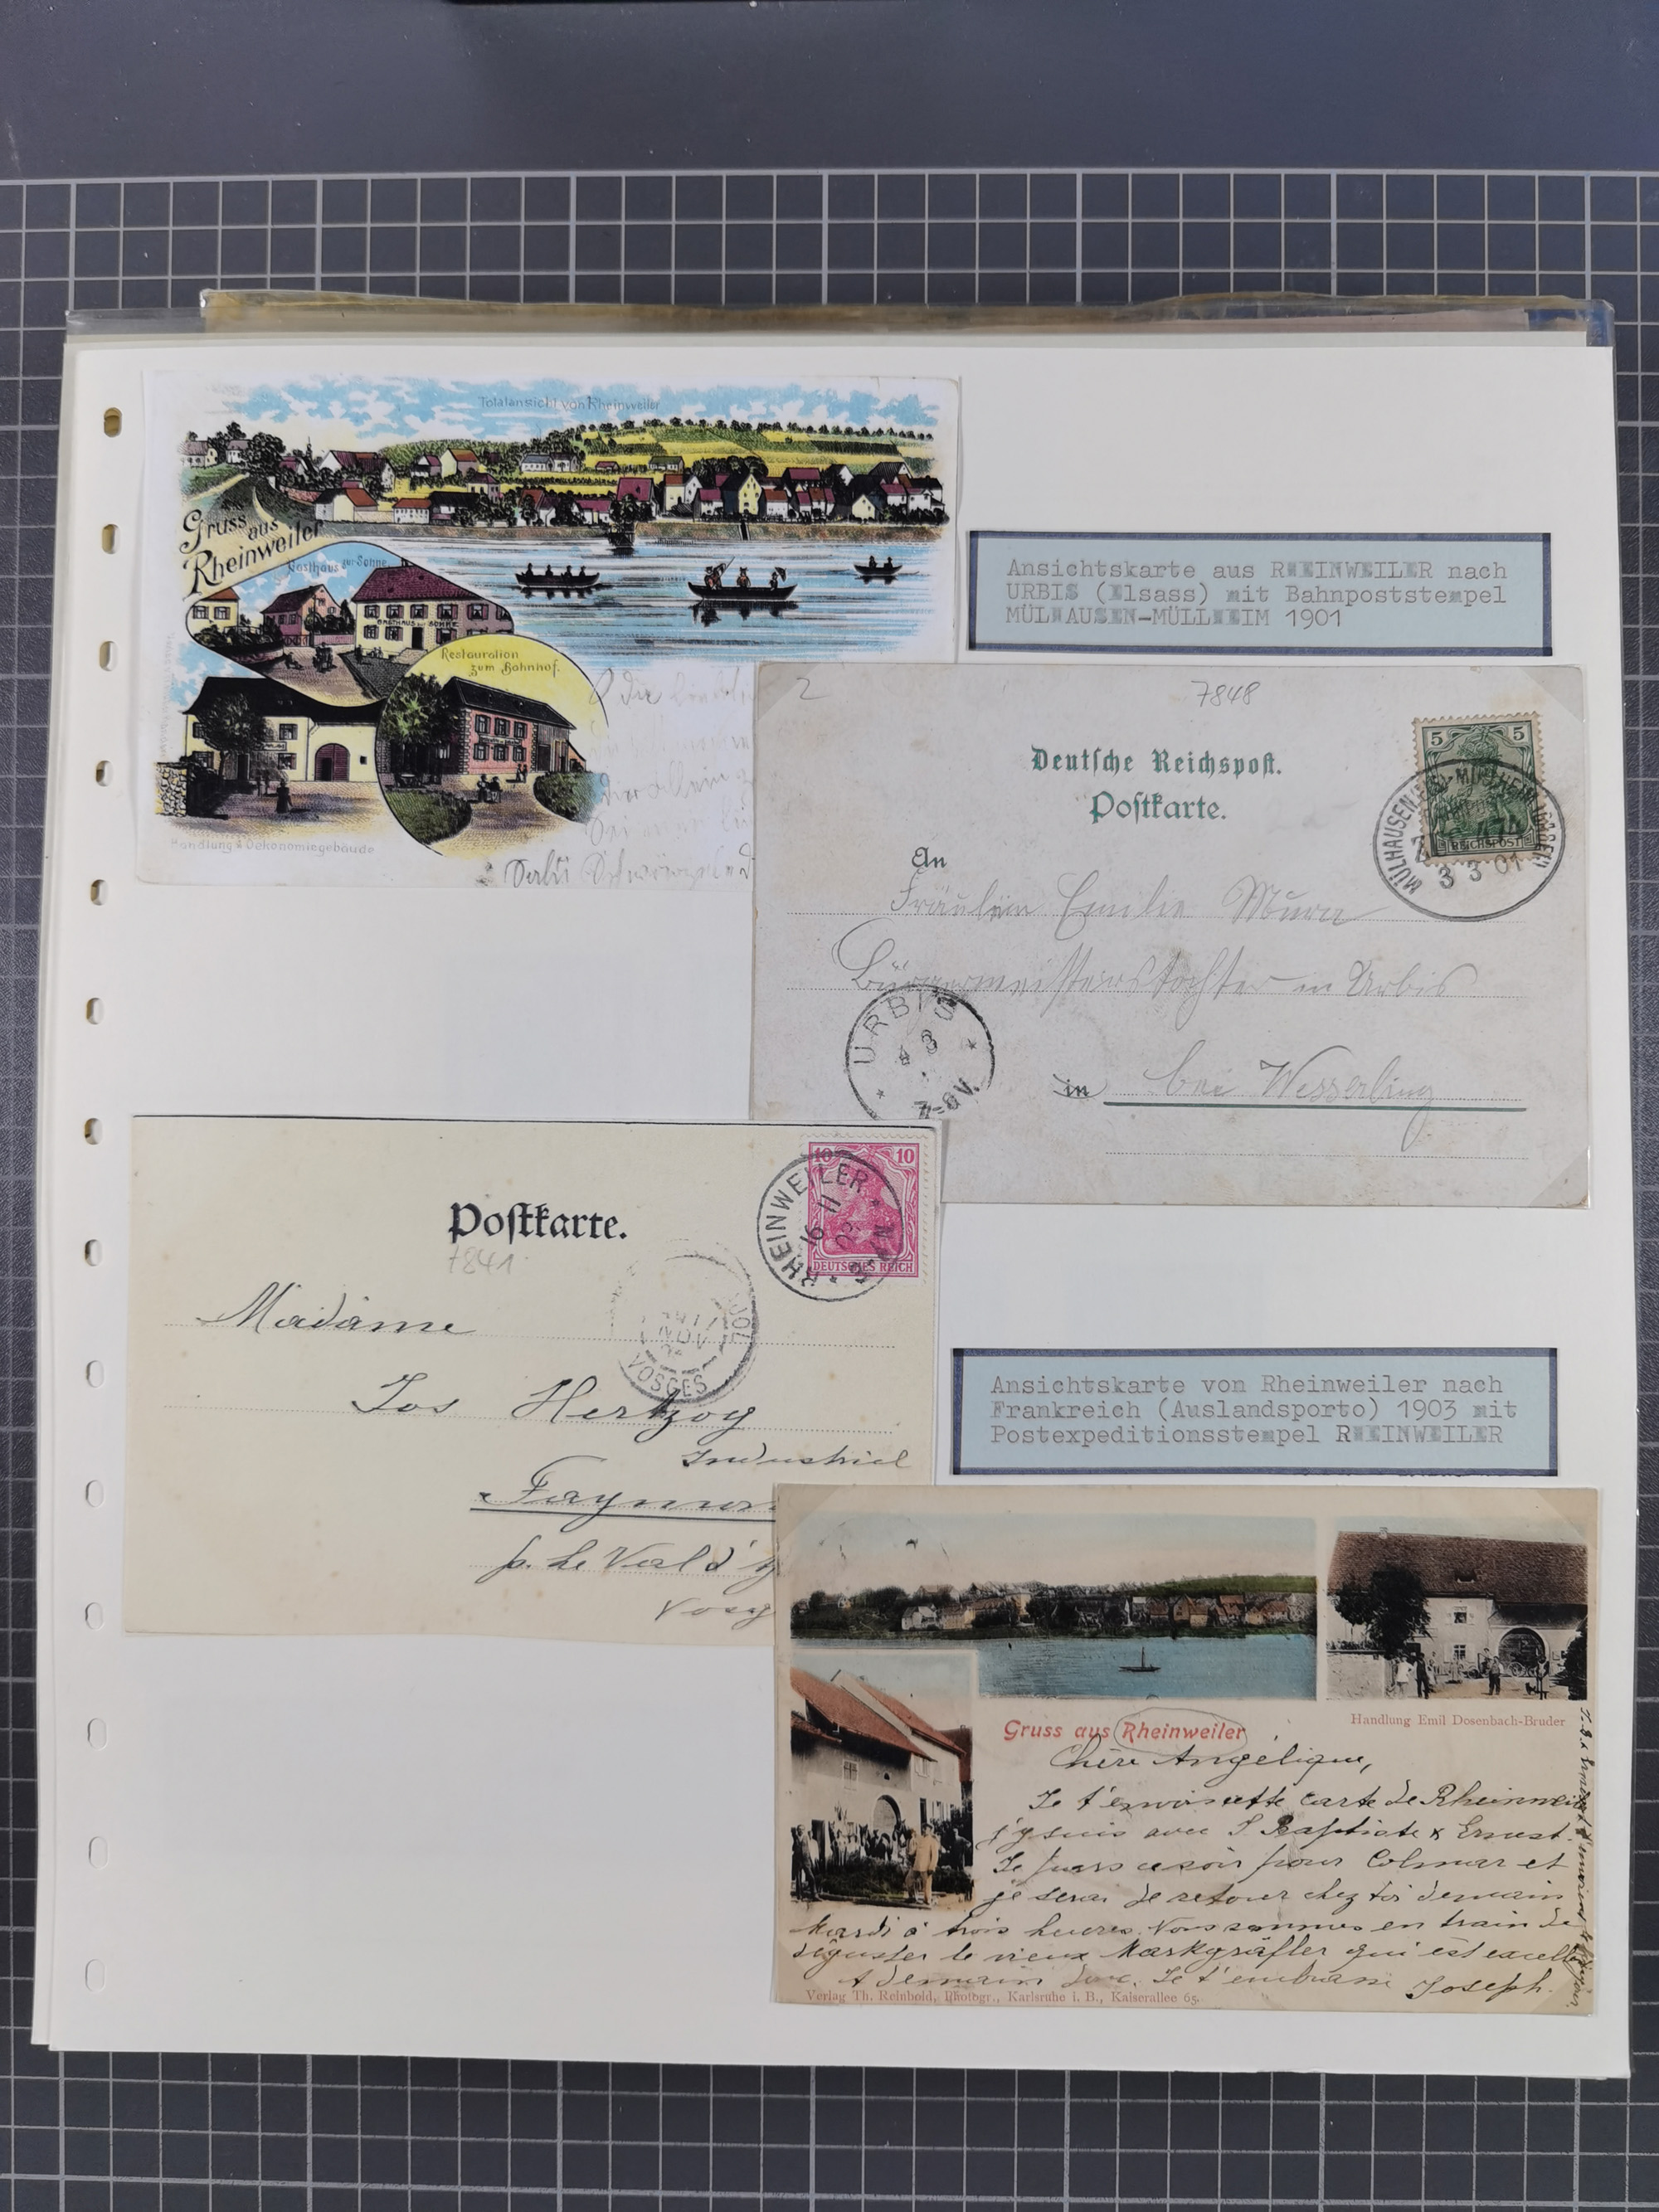 Totalansicht von Rheinweiler
Gruss aus
Rheinweiler
Gasthaus zur Sonne
GASTHAUS zur SONNE
Restauration
zum Bahnhof.
Handlung & Oekonomiegebäude
Ansichtskarte aus RHEINWEILER nach
URBIS (Elsass) mit Bahnpoststempel
MÜLHAUSEN-MÜLLHEIM 1901
2
7848
Deutsche Reichspost.
Postkarte.
5 5
REICHSPOST
MÜLHAUSEN (ELS)-MÜLLHEIM (BADEN)
3 3 01
An
Fräulein Emilie Murer
Bürgermeisterstochter in Urbis
URBIS
4 3
7-8V.
in bei Wesserling
Postkarte.
7841
10 10
DEUTSCHES REICH
RHEINWEILER
16 11
NOV
VOSGES
Madame
Jos Hertzog
Industriel
Faymon
p. Le Val d'
Vosg
Ansichtskarte von Rheinweiler nach
Frankreich (Auslandsporto) 1903 mit
Postexpeditionsstempel RHEINWEILER
Gruss aus Rheinweiler
Handlung Emil Dosenbach-Bruder
Chère Angélique,
Je t'envois cette carte de Rheinweiler
j'y suis avec J Baptiste & Ernest.
Je pars ce soir pour Colmar et
je serai de retour chez toi demain
Mardi à trois heures. Nous sommes en train de
déguster le vieux Markgräfler qui est excellent
A demain donc. Je t'embrasse Joseph.
Verlag Th. Reinbold, Photogr., Karlsruhe i. B., Kaiserallee 65.